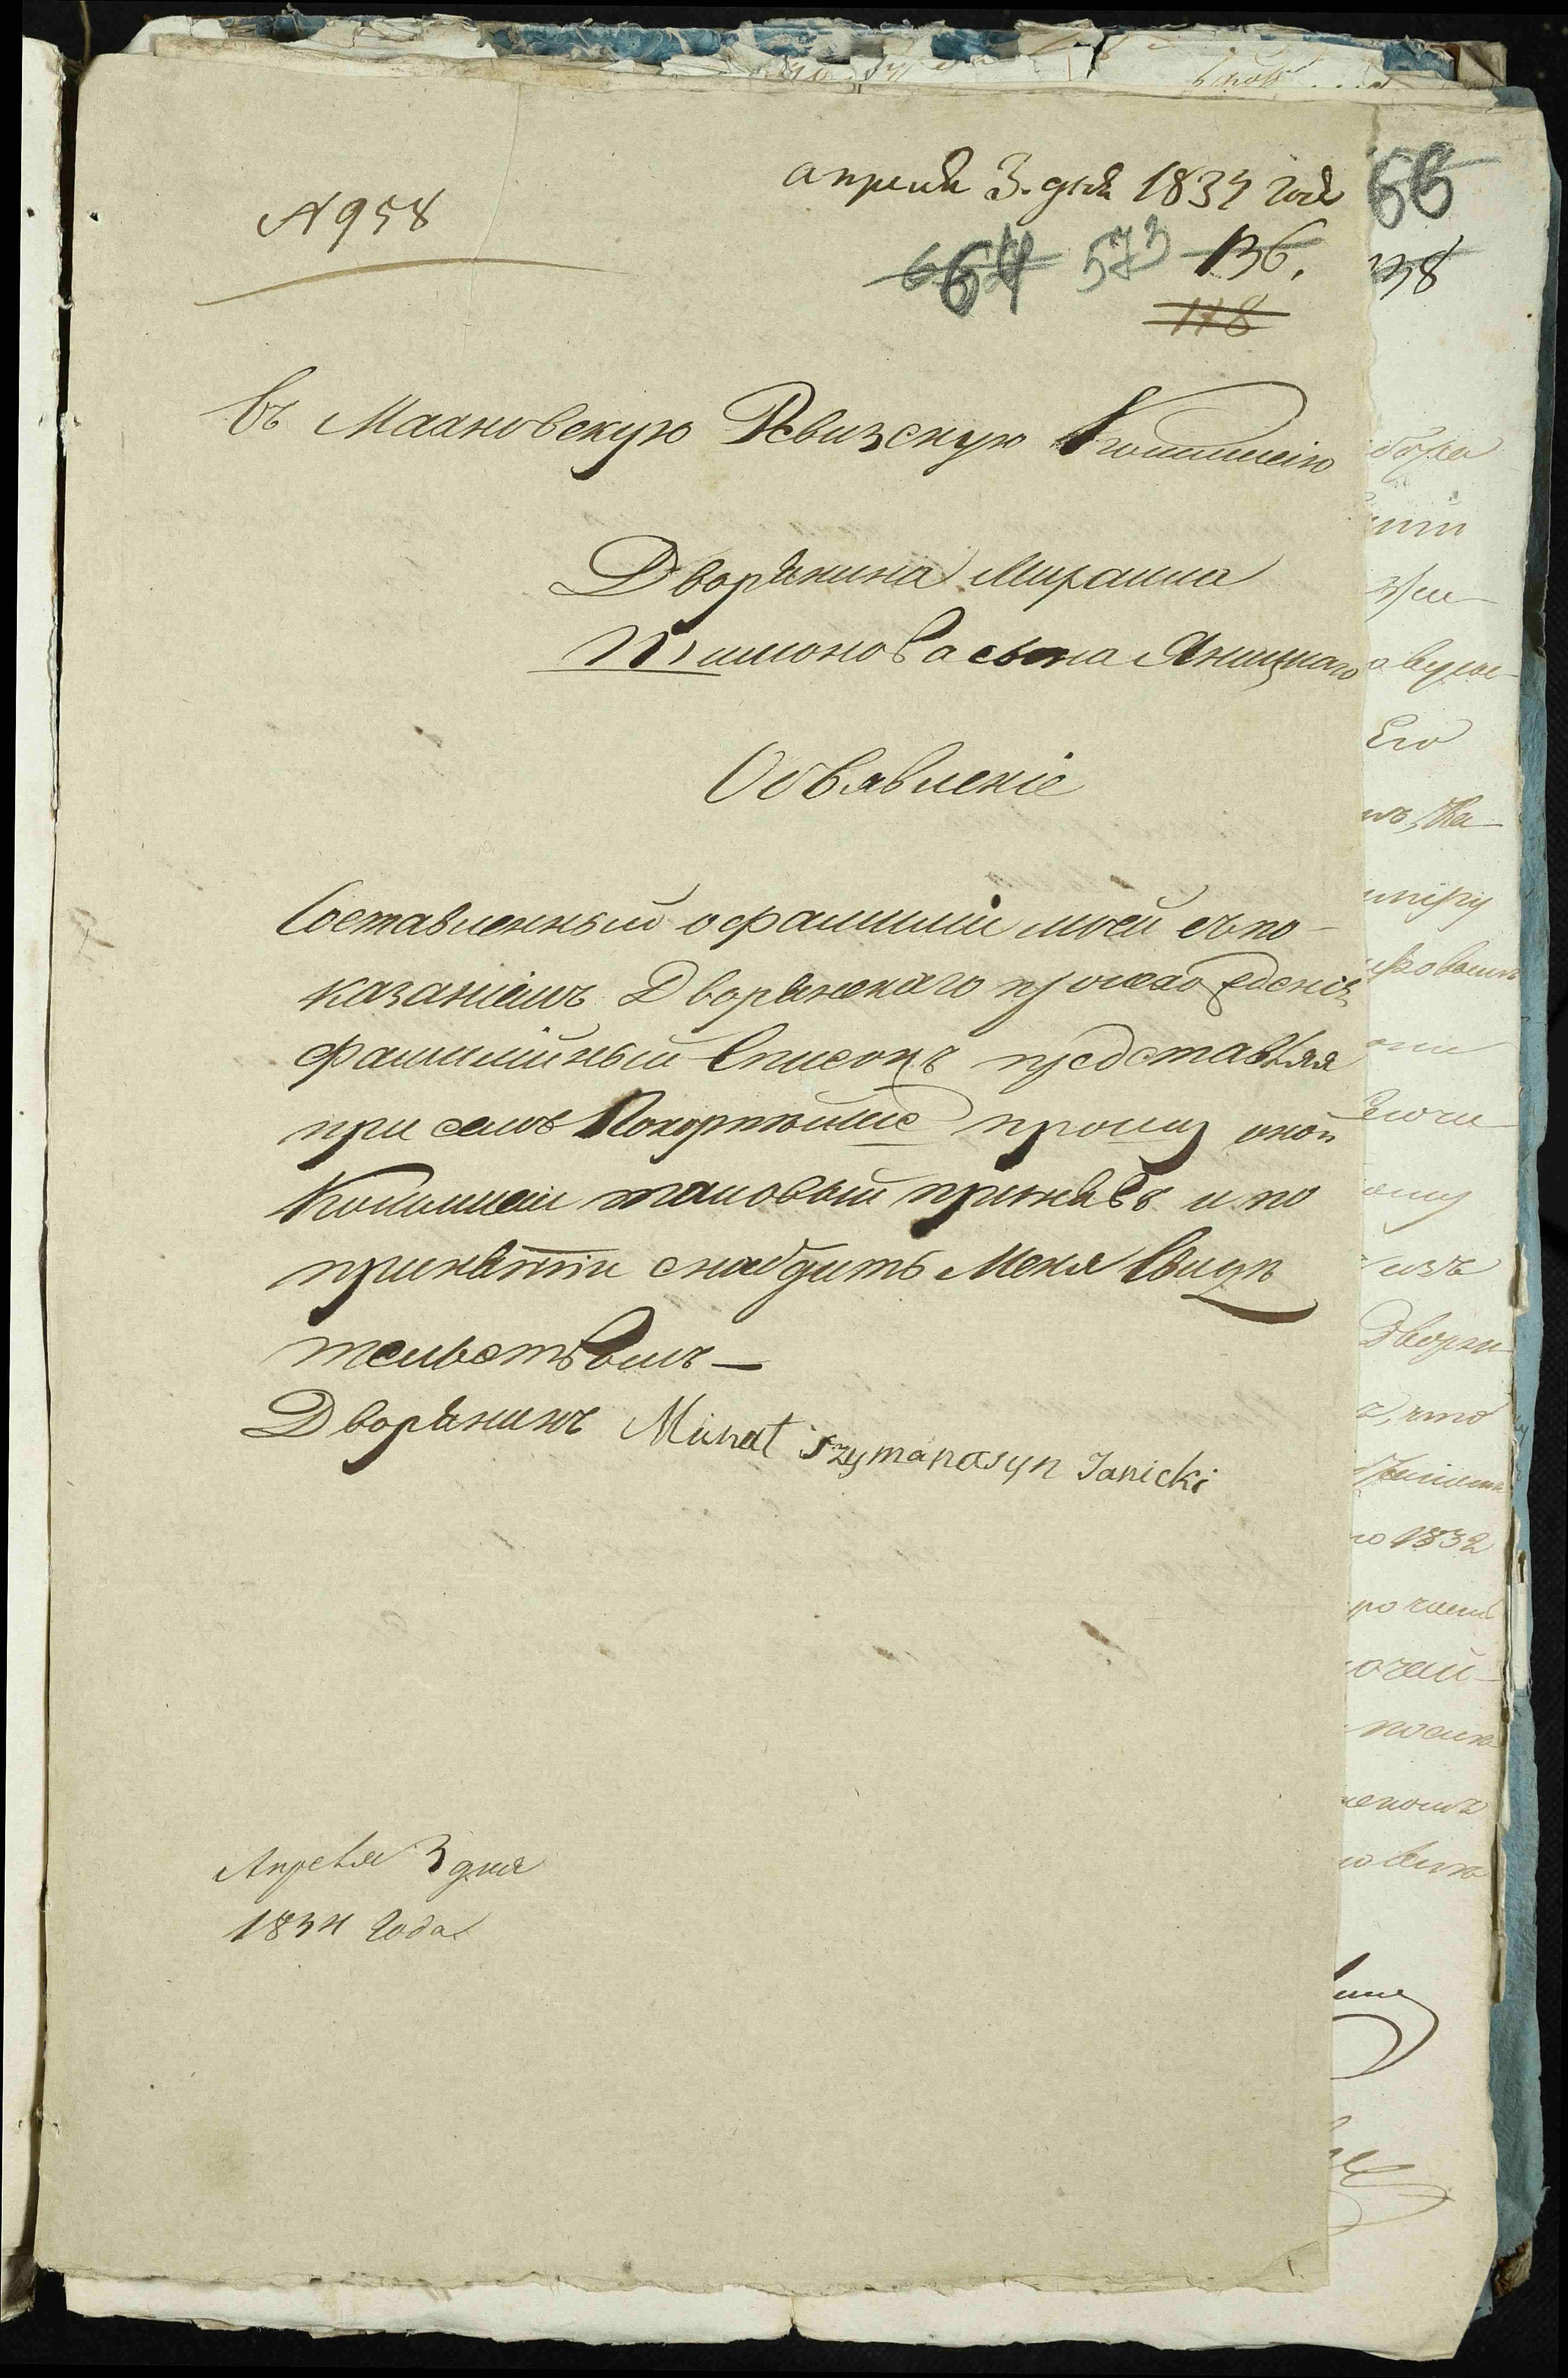 апреля 3. дня 1834 года
№ 958
664 573 136.
118
Въ Маановскую Ревизскую Коммисію
Дворянина Михаила
Шимонова сына Яницкаго
Объявленіе
Составленный о фамиліи моей съ по-
казаніемъ Дворянскаго происхожденія
фамилійный Списокъ представляя
при семъ Покорнѣйше прошу оной
Коммисіи таковый принявъ и по
принятіи снабдить Меня Свидѣ
тельствомъ —
Дворянинъ Michał Szymana syn Janicki
Апреля 3 дня
1834 Года
66
138
Его
изъ
Дворян
, что
1832